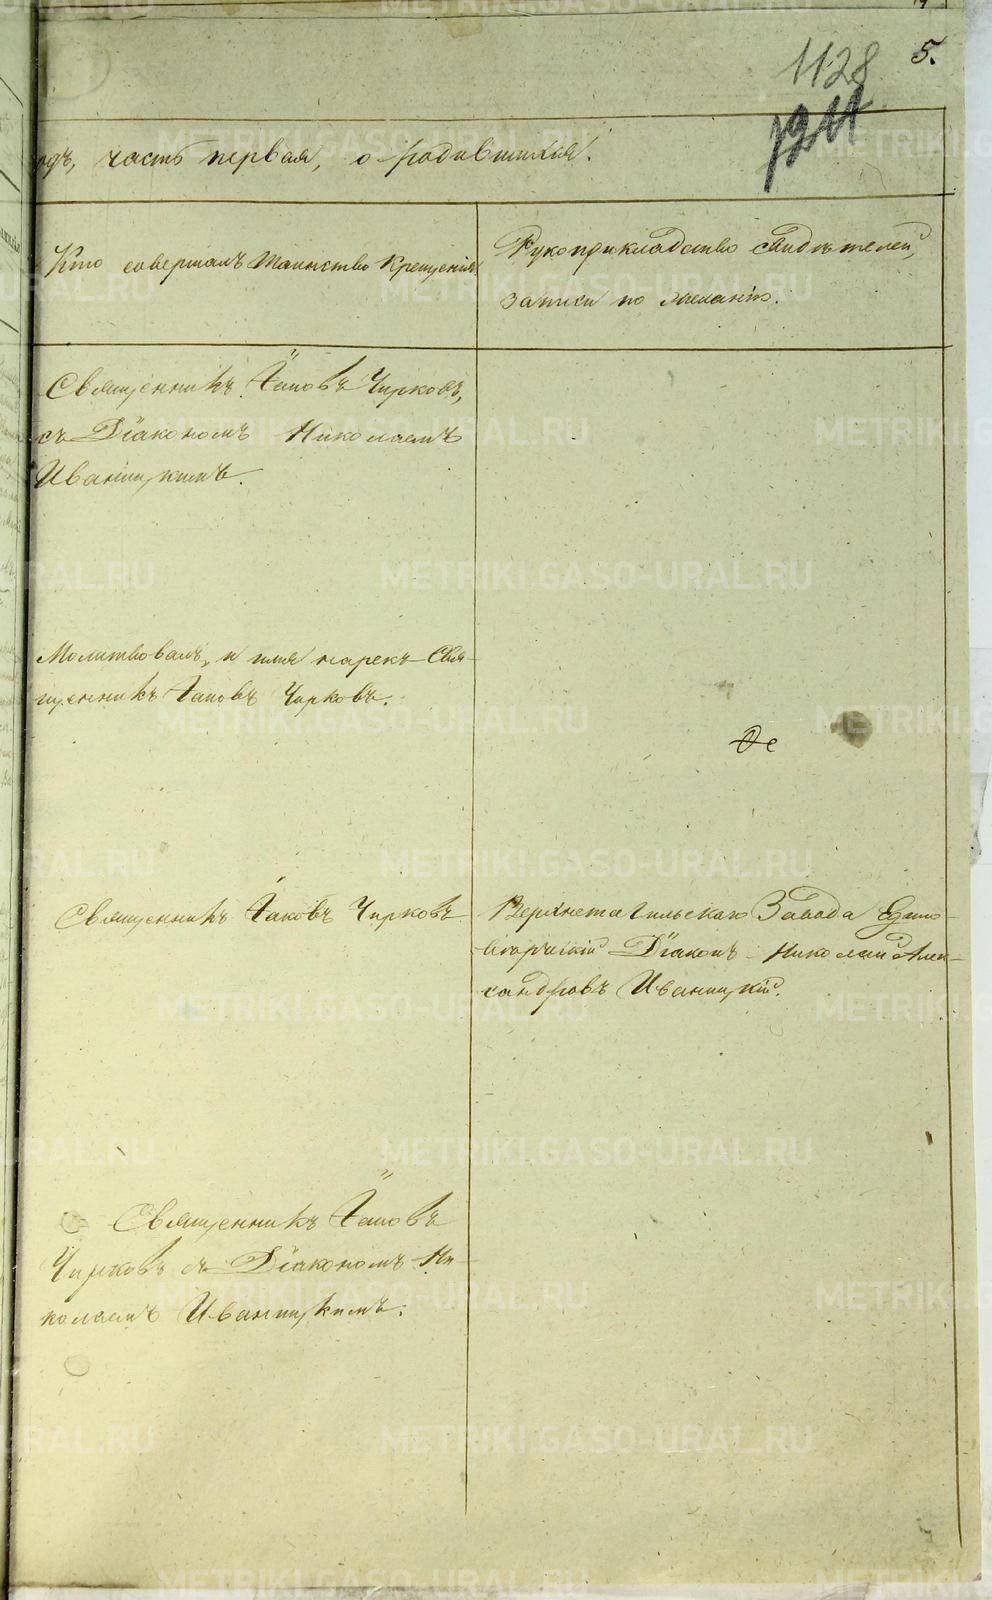 5.
1128
одъ, часть первая, о родившихся.
Кто совершалъ таинство крещенія.
Рукоприкладство свидѣтелей
записи по желанію.
Священникъ Іаковъ Чирковъ,
съ Діакономъ Николаемъ
Иваницкимъ.
Молитвовалъ, и имя нарекъ Свя-
щенникъ Іаковъ Чирковъ.
Священникъ Іаковъ Чирковъ
Верхнетагильскаго Завода Едино-
вѣрческій Діаконъ Николай Алек-
сандровъ Иваницкій.
Священникъ Іаковъ
Чирковъ съ Діакономъ Ни-
колаемъ Иваницкимъ.
METRIKI.GASO-URAL.RU